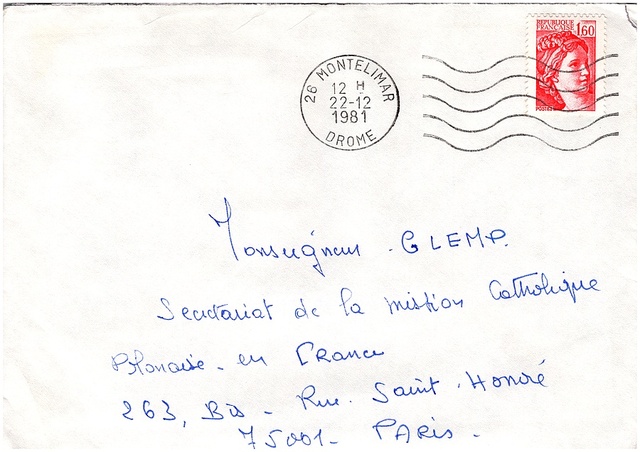 REPUBLIQUE
FRANÇAISE 1,60
26 MONTELIMAR
12 H
22-12
1981
DROME
Monseigneur. GLEMP.
Secretariat de la mission Catholique
Polonaise - en France
263, Bis - Rue. Saint. Honoré
75001 - PARIS -